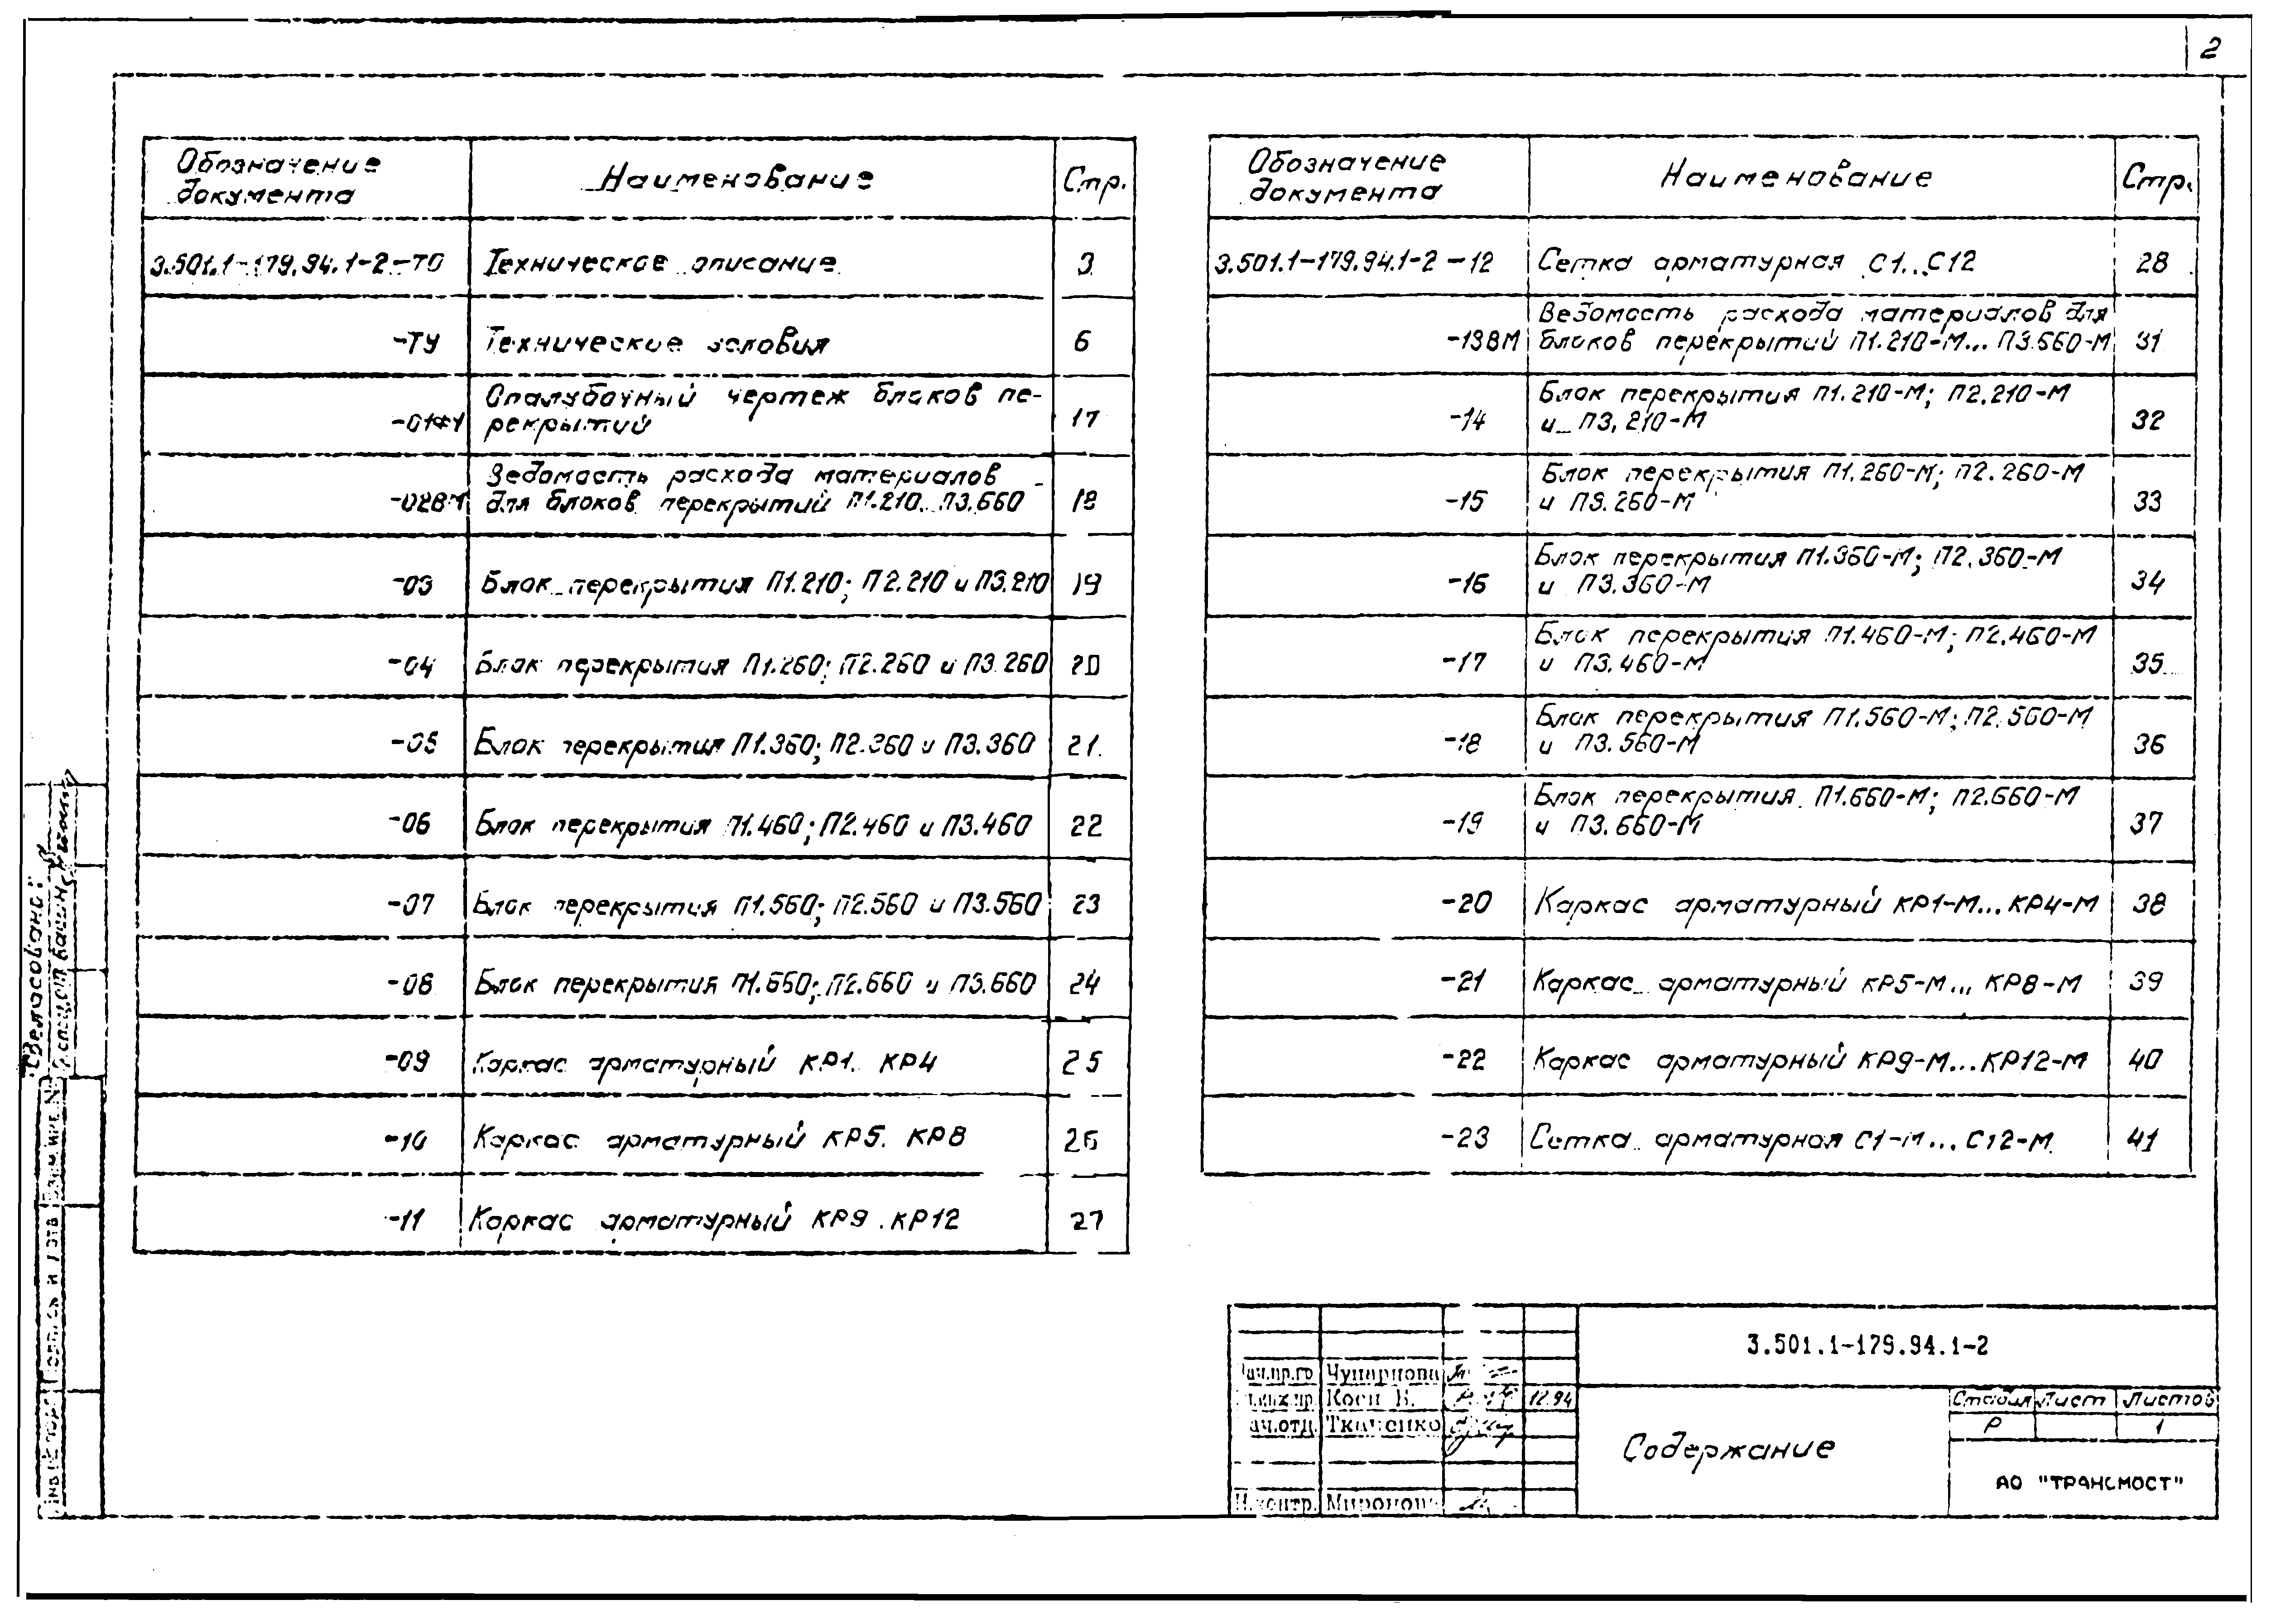 2
Обозначение документа Наименование Стр.
3.501.1-179.94.1-2-ТО Техническое описание 3
-ТУ Технические условия 6
Опалубочный чертеж блоков пе-
рекрытий 17
Ведомость расхода материалов
-02ВМ для блоков перекрытий П1.210...П3.660 18
-03 Блок перекрытия П1.210; П2.210 и П3.210 19
-04 Блок перекрытия П1.260; П2.260 и П3.260 20
-05 Блок перекрытия П1.360; П2.360 и П3.360 21
-06 Блок перекрытия П1.460; П2.460 и П3.460 22
-07 Блок перекрытия П1.560; П2.560 и П3.560 23
-08 Блок перекрытия П1.660; П2.660 и П3.660 24
-09 Каркас арматурный КР1..КР4 25
-10 Каркас арматурный КР5..КР8 26
-11 Каркас арматурный КР9..КР12 27
Обозначение документа Наименование Стр.
3.501.1-179.94.1-2-12 Сетка арматурная С1...С12 28
Ведомость расхода материалов для
-13ВМ блоков перекрытий П1.210-М... П3.660-М 31
Блок перекрытия П1.210-М; П2.210-М
-14 и П3.210-М 32
Блок перекрытия П1.260-М; П2.260-М
-15 и П3.260-М 33
Блок перекрытия П1.360-М; П2.360-М
-16 и П3.360-М 34
Блок перекрытия П1.460-М; П2.460-М
-17 и П3.460-М 35
Блок перекрытия П1.560-М; П2.560-М
-18 и П3.560-М 36
Блок перекрытия П1.660-М; П2.660-М
-19 и П3.660-М 37
-20 Каркас арматурный КР1-М...КР4-М 38
-21 Каркас арматурный КР5-М... КР8-М 39
-22 Каркас арматурный КР9-М...КР12-М 40
-23 Сетка арматурная С1-М... С12-М 41
3.501.1-179.94.1-2
12.94
Ткаченко
Н.контр.
Содержание
Стадия Лист Листов
Р 1
АО "ТРАНСМОСТ"
Согласовано: